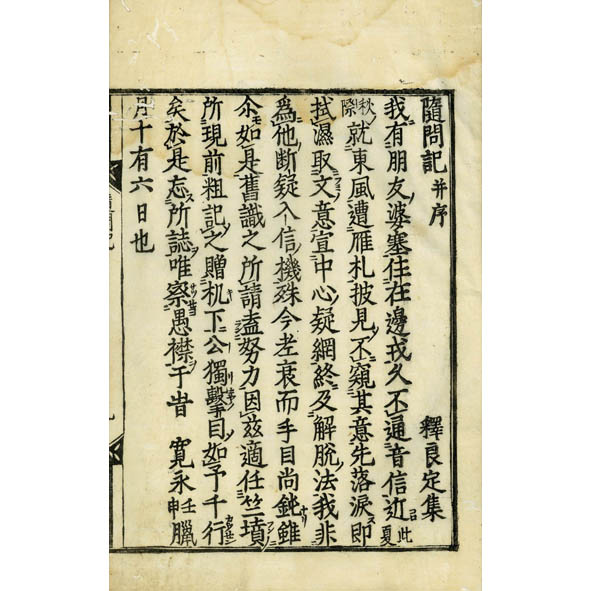 隨問記 并序 釋良定集
我有朋友婆塞住在邊戎久不通音信近此夏
秋際就東風遭雁札披見不窺其意先落淚即
拭濕取文意宣中心疑網終及解脫法我非
為他断疑入信機殊今老衰而手目尚鈍雖
尒如是舊識之所請盍努力因茲適任竺墳
所現前粗記之贈机下公獨擊目如予千行
矣於是忘所誌唯察愚襟于旹 寛永壬申臘
月十有六日也